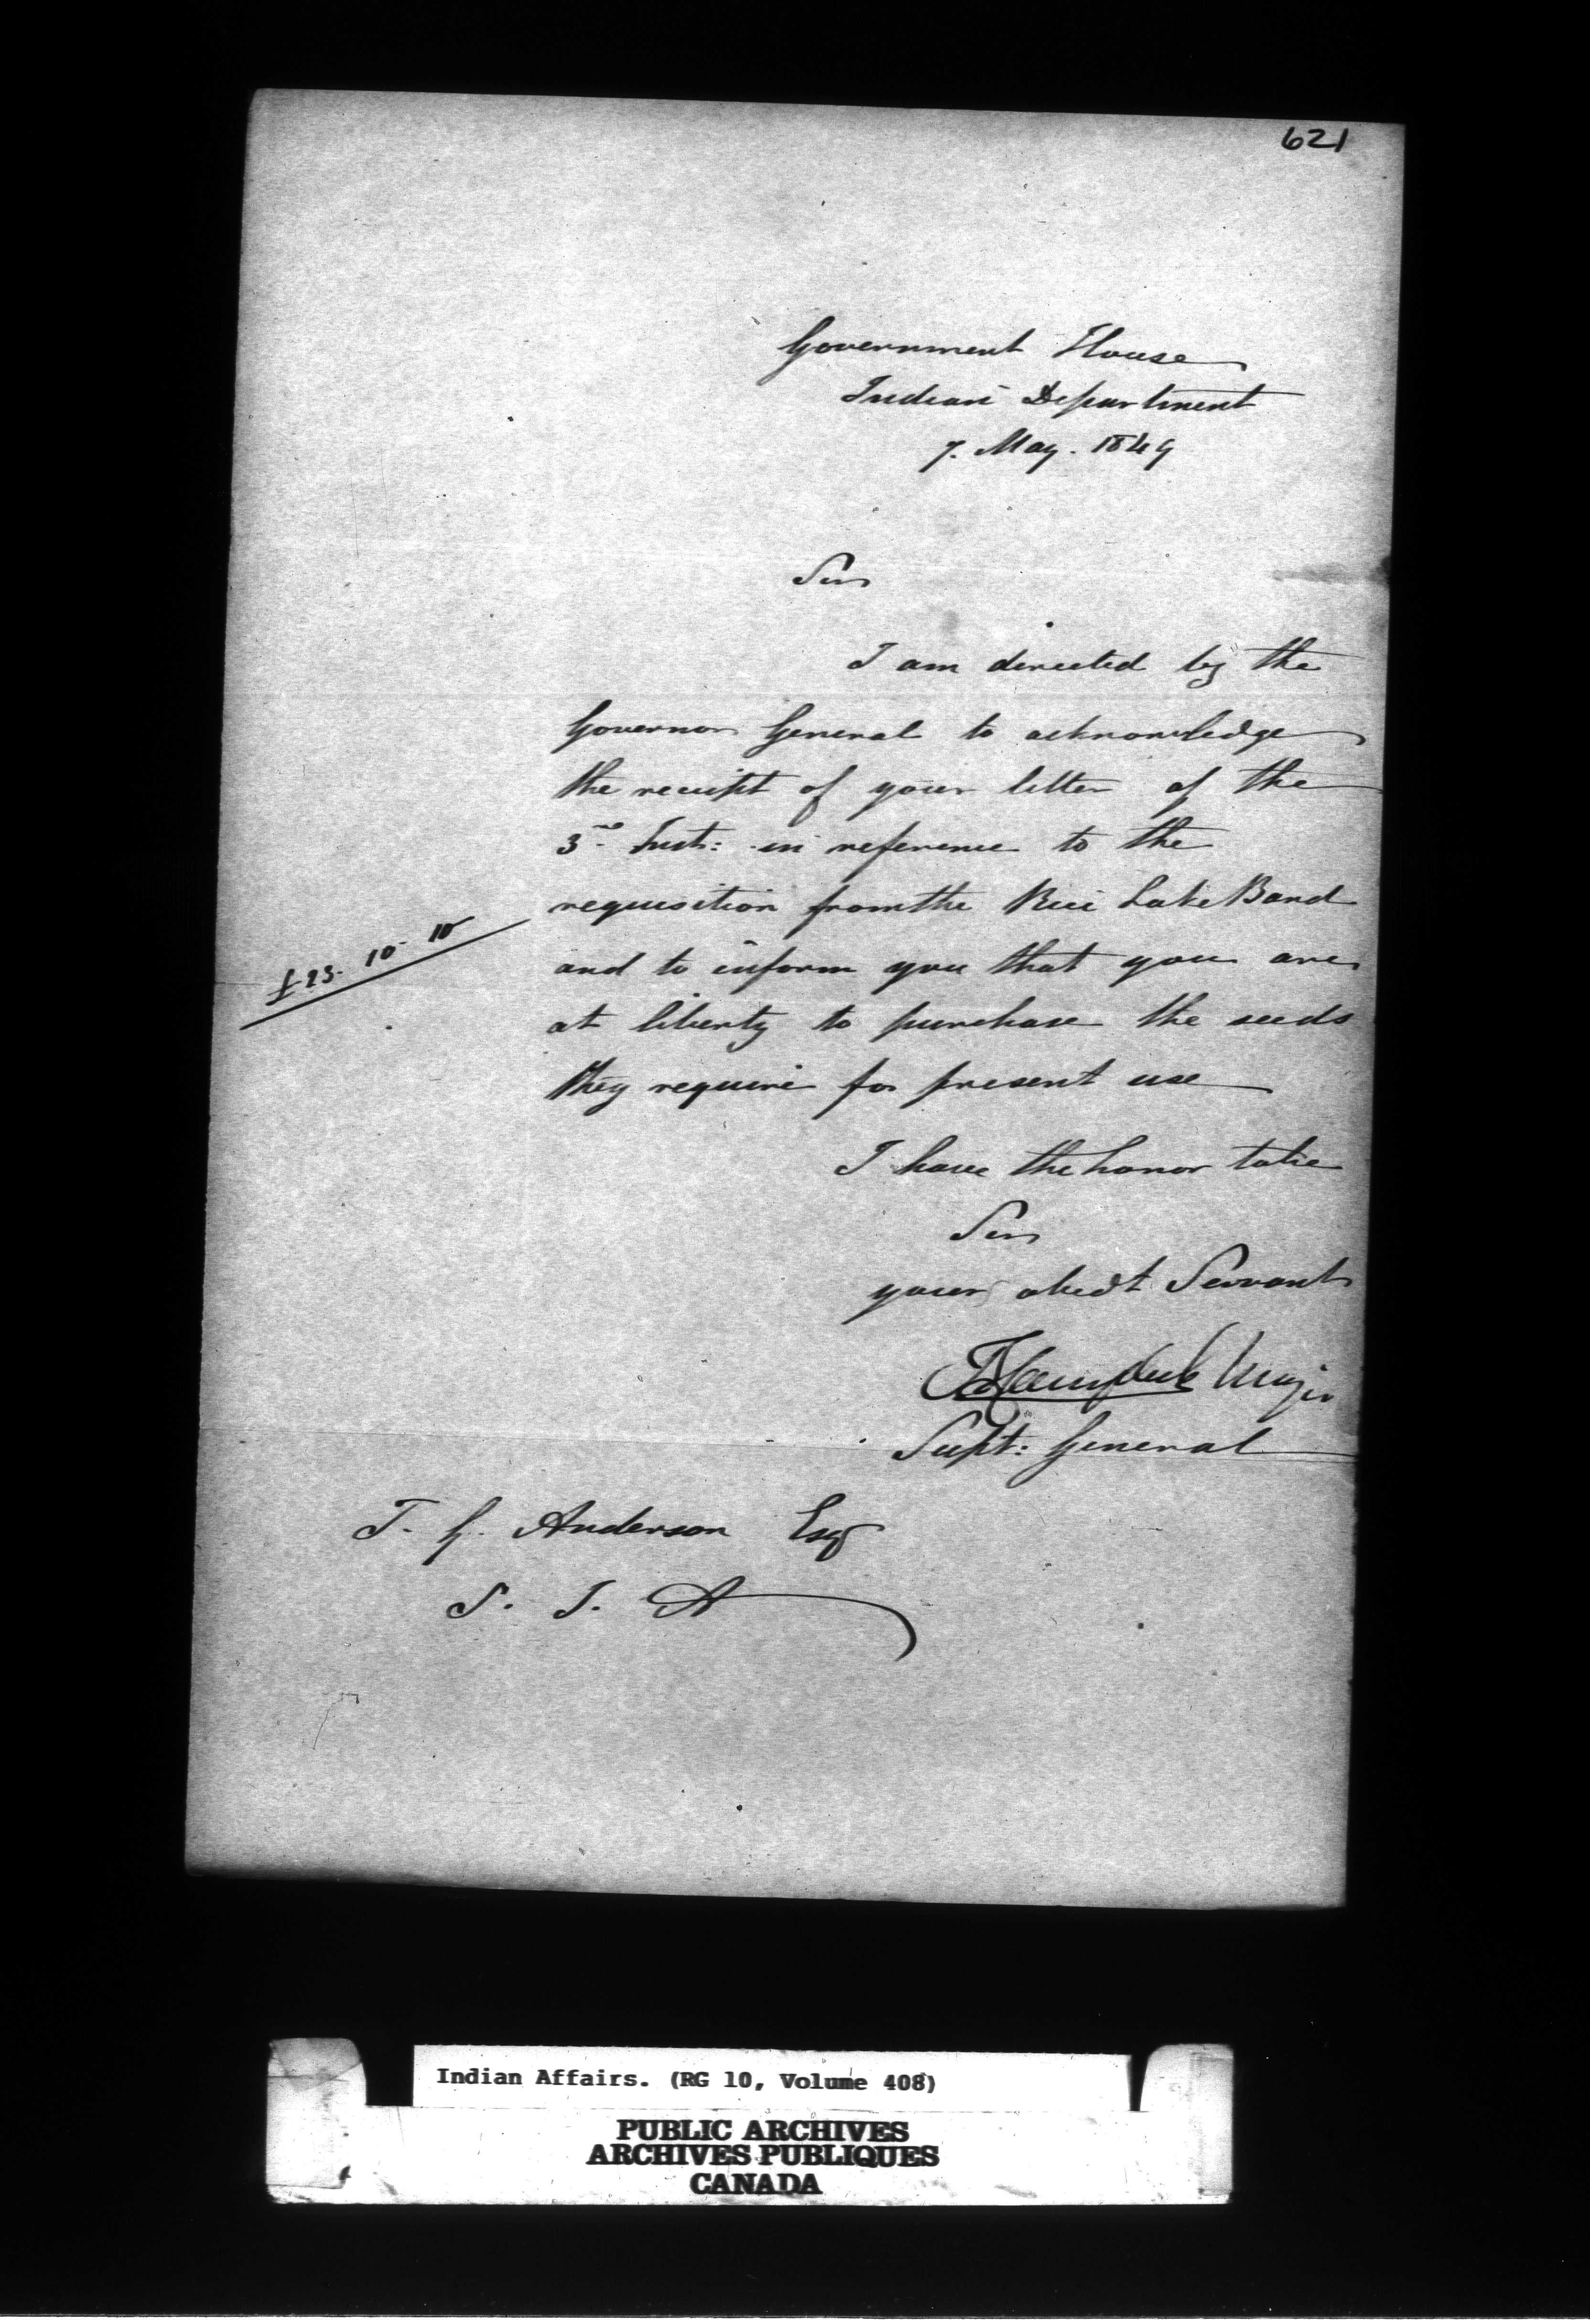 621
Government House
Indian Department
7. May. 1849
Sir
I am directed by the
Governor General to acknowledge
the receipt of your letter of the
3rd Inst: in reference to the
requisition from the Rice Lake Band
£23. 10 10
and to inform you that you are
at liberty to purchase the seeds
they require for present use
I have the honor to be
Sir
your obedt Servant
T Campbell Major
Supt: General
T. G. Anderson Esq
S. I. A
Indian Affairs. (RG 10, Volume 408)
PUBLIC ARCHIVES
ARCHIVES PUBLIQUES
CANADA